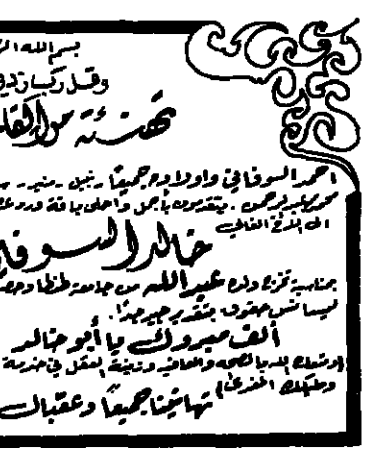 بسم الله الر
وقل رب زدني
تهنئة من القلب
احمد السوفاني واولاده جميعاً (نبيل - منير -
محمد عبدالرحمن . يتقدمون بأجمل وأحلى باقة ورد
الى الأخ الغالي
خالد السوفا
بمناسبة تخرج ولده عبدالله من جامعة طنطا وحص
ليسانس حقوق بتقدير جيد جداً.
ألف مبروك يا أبو خالد
بالصحه والعافيه وزينة العقل في خدمة
تهانينا جميعاً وعقبال